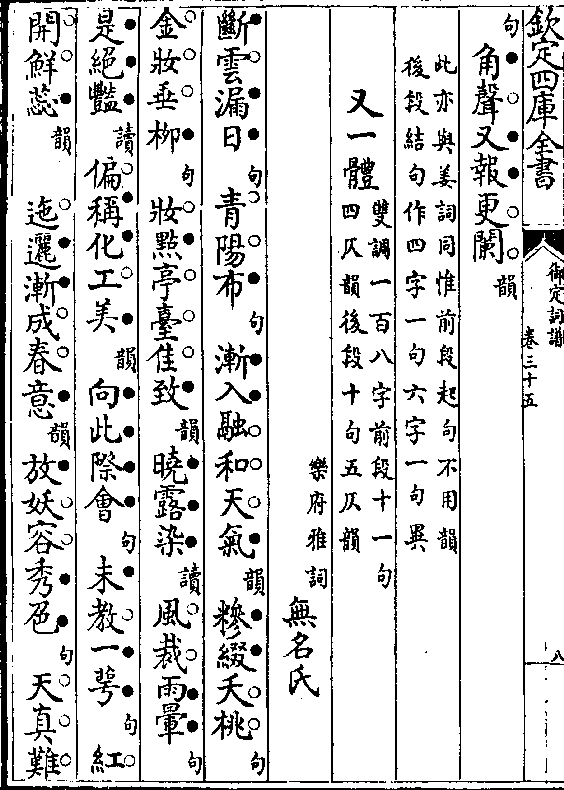 欽定四庫全書
御定詞譜
卷三十五
八
句角聲又報更闌韻
此亦與姜詞同惟前段起句不用韻
後段結句作四字一句六字一句異
又一體雙調一百八字前段十一句
四仄韻後段十句五仄韻
樂府雅詞無名氏
斷雲漏日句青陽布句漸入融和天氣韻糝綴夭桃句
金妝垂柳句妝點亭臺佳致韻曉露染讀風裁雨暈句
是絕豔讀偏稱化工美韻向此際會句未教一萼句紅
開鮮蕊韻迤邐漸成春意韻放妖容秀色句天真難